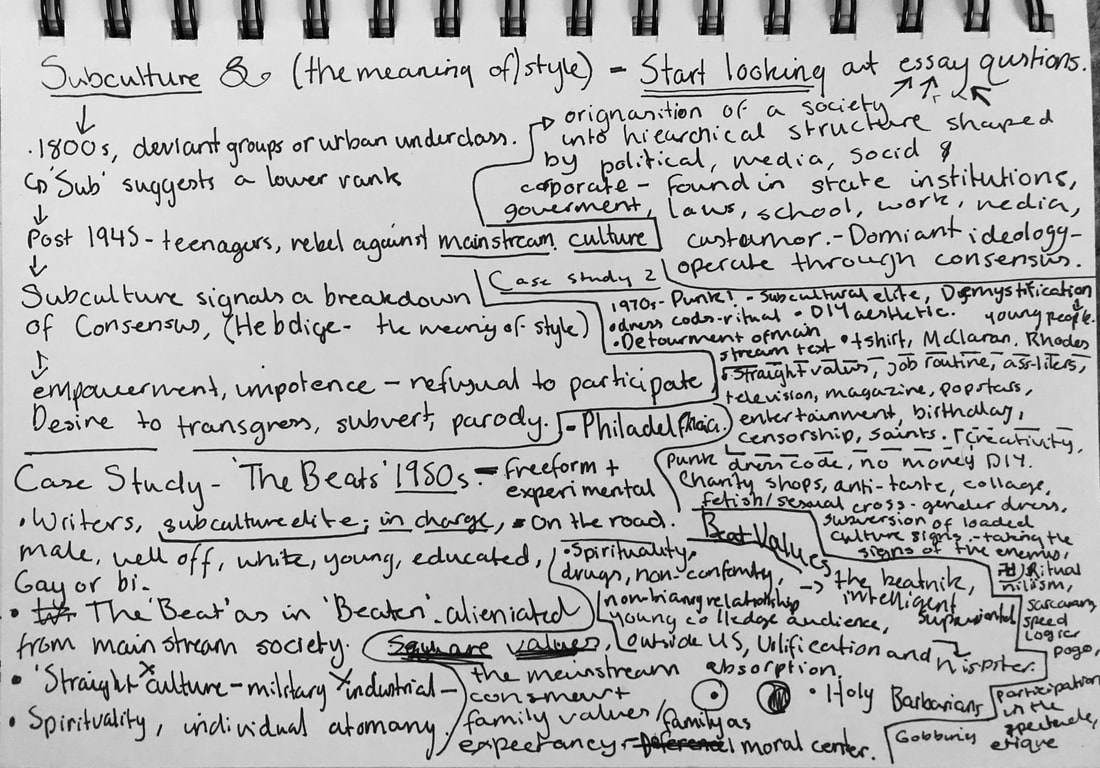 Subculture & (the meaning of) style) - Start looking at essay qustions.
.1800s, deviant groups or urban underclass.
'Sub' suggests a lower rank
Post 1945 - teenagers, rebel against mainstream culture
orignasition of a society
into hiearchical structure shaped
by political, media, socid &
coporate - found in state institutions,
goverment, laws, school, work, media,
custamor. - Domiant ideology -
operate through consensus.
Subculture signals a breakdown
of Consensus, (Hebdige - the meaning of style)
empowerment, impotence - refusual to participate
Desire to transgress, subvert, parody.
- Philadel
Case study 2
1970s - Punk! - Subcultural elite, Demystification
• dress code - ritual • DIY aesthetic. young people.
• Detourment of main
stream text • tshirt, McClaran, Rhodes
• Straight values, job routine,
television, magazine, popstars,
entertainment, birthday,
censorship, saints. creativity,
Punk dress code, no money DIY.
Charity shops, anti-taste, collage,
fetish/sexual cross-gender dress,
subversion of loaded
culture signs - taking the
signs of the enemy,
Ritual
niliism,
sarcasm,
speed
pogo,
participation
in the
spectacle,
Gobbing
Case Study - 'The Beats' 1950s. - freeform +
experimental
• Writers, subculture elite; in charge, • On the road.
male, well off, white, young, educated,
Gay or bi.
• The 'Beat' as in 'Beaten' alieniated
from mainstream society.
• 'Straight' culture - military industrial -
• Spirituality, individual atomany
Square values,
the meinstream absorption,
consment
family values / family as
expectancy - moral center.
Beat Values
• Spirituality,
drugs, non-conformity,
relationship
young colledge audience,
outside US, Uilification and
the beatnik,
intelligent
hipster.
• Holy Barbarians